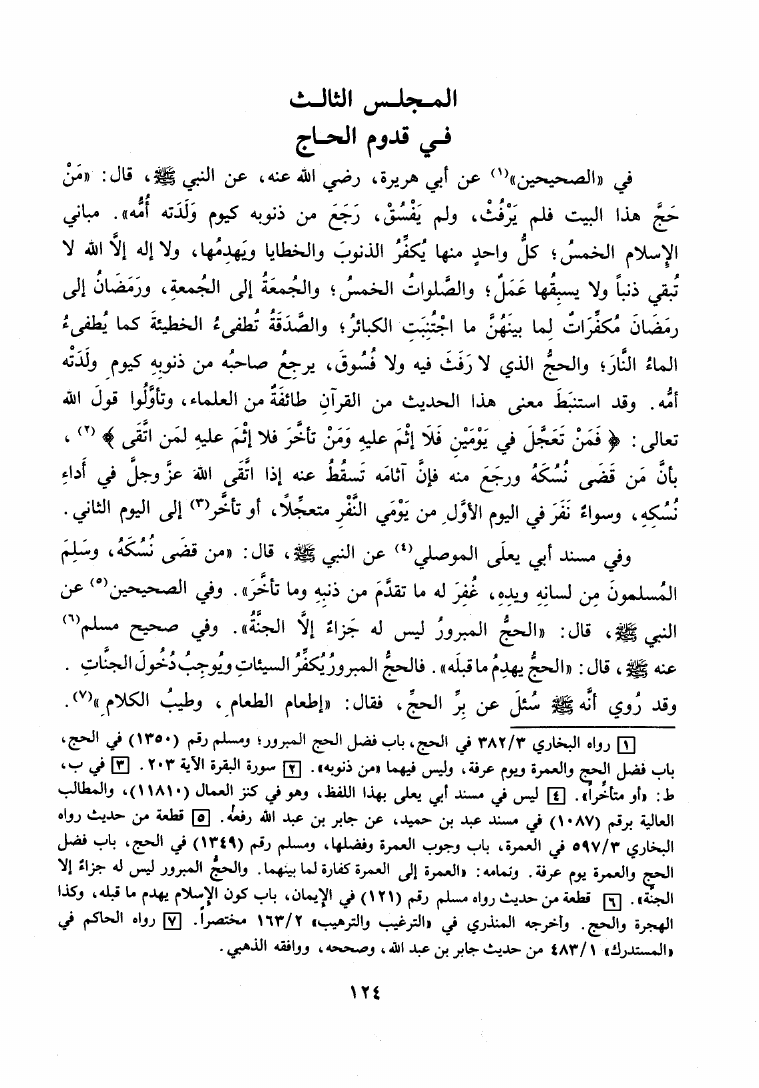 المـجلـس الثالـث
فـي قدوم الحـاج
في «الصحيحين»(١) عن أبي هريرة، رضي الله عنه، عن النبي ﷺ، قال: «مَنْ
حَجَّ هذا البيت فلم يَرْفُثْ، ولم يَفْسُقْ، رَجَعَ من ذنوبه كيوم وَلَدَته أُمُّه». مباني
الإسلام الخمسُ؛ كلُّ واحدٍ منها يُكفِّرُ الذنوبَ والخطايا ويَهدِمُها، ولا إله إلاَّ الله لا
تُبقي ذنباً ولا يسبِقُها عَمَلٌ؛ والصَّلواتُ الخمسُ؛ والجُمعَةُ إلى الجُمعةِ، ورَمَضَانُ إلى
رمَضَانَ مُكفِّرَاتٌ لِما بينَهُنَّ ما اجتُنِبَتِ الكبائرُ؛ والصَّدَقَةُ تُطفىءُ الخطيئةَ كما يُطفىءُ
الماءُ النَّارَ؛ والحجُّ الذي لا رَفَثَ فيه ولا فُسُوقَ، يرجِعُ صاحبُه من ذنوبِهِ كيومِ ولَدَتْه
أمُّه. وقد استنبَطَ معنى هذا الحديث من القرآنِ طائفةٌ من العلماء، وتأوَّلُوا قولَ الله
تعالى: ﴿ فَمَنْ تَعَجَّلَ في يَوْمَيْنِ فَلَا إثْمَ عليهِ وَمَنْ تأخَّرَ فلا إثْمَ عليهِ لمَن اتَّقَى ﴾ (٢)،
بأنَّ مَن قَضَى نُسُكَهُ ورجَعَ منه فإنَّ آثامَه تَسقُطُ عنه إذا اتَّقَى اللهَ عزَّ وجلَّ في أداءِ
نُسُكِهِ، وسواءٌ نَفَرَ في اليوم الأوَّلِ من يَوْمَي النَّفْرِ متعجِّلاً، أو تأخَّر(٣) إلى اليوم الثاني.
وفي مسند أبي يعلَى الموصلي(٤) عن النبي ﷺ، قال: «من قَضَى نُسُكَهُ، وسَلِمَ
المُسلمونَ مِن لسانِهِ ويدِهِ، غُفِرَ له ما تقدَّمَ من ذنبِهِ وما تأخَّرَ». وفي الصحيحين(٥) عن
النبي ﷺ، قال: «الحجُّ المبرورُ ليس له جَزاءٌ إلاَّ الجنَّةُ». وفي صحيح مسلم(٦)
عنه ﷺ، قال: «الحجُّ يهدِمُ ما قبلَه». فالحجُّ المبرورُ يُكفِّرُ السيئاتِ ويُوجِبُ دُخُولَ الجنَّاتِ .
وقد رُوي أنَّه ﷺ سُئلَ عن بِرِّ الحجِّ، فقال: «إطعام الطعامِ، وطيبُ الكلامِ»(٧).
١ رواه البخاري ٣٨٢/٣ في الحج، باب فضل الحج المبرور؛ ومسلم رقم (١٣٥٠) في الحج،
باب فضل الحج والعمرة ويوم عرفة، وليس فيهما «من ذنوبه». ٢ سورة البقرة الآية ٢٠٣. ٣ في ب،
ط: «أو متأخِّراً». ٤ ليس في مسند أبي يعلى بهذا اللفظ، وهو في كنز العمال (١١٨١٠)، والمطالب
العالية برقم (١٠٨٧) في مسند عبد بن حميد، عن جابر بن عبد الله رفعهُ. ٥ قطعة من حديث رواه
البخاري ٥٩٧/٣ في العمرة، باب وجوب العمرة وفضلها، ومسلم رقم (١٣٤٩) في الحج، باب فضل
الحج والعمرة يوم عرفة. وتمامه: «العمرة إلى العمرة كفارة لما بينهما. والحجُّ المبرور ليس له جزاءٌ إلا
الجنَّة». ٦ قطعة من حديث رواه مسلم رقم (١٢١) في الإيمان، باب كون الإسلام يهدم ما قبله، وكذا
الهجرة والحج. وأخرجه المنذري في «الترغيب والترهيب» ١٦٣/٢ مختصراً. ٧ رواه الحاكم في
«المستدرك» ٤٨٣/١ من حديث جابر بن عبد الله، وصححه، ووافقه الذهبي.
١٢٤